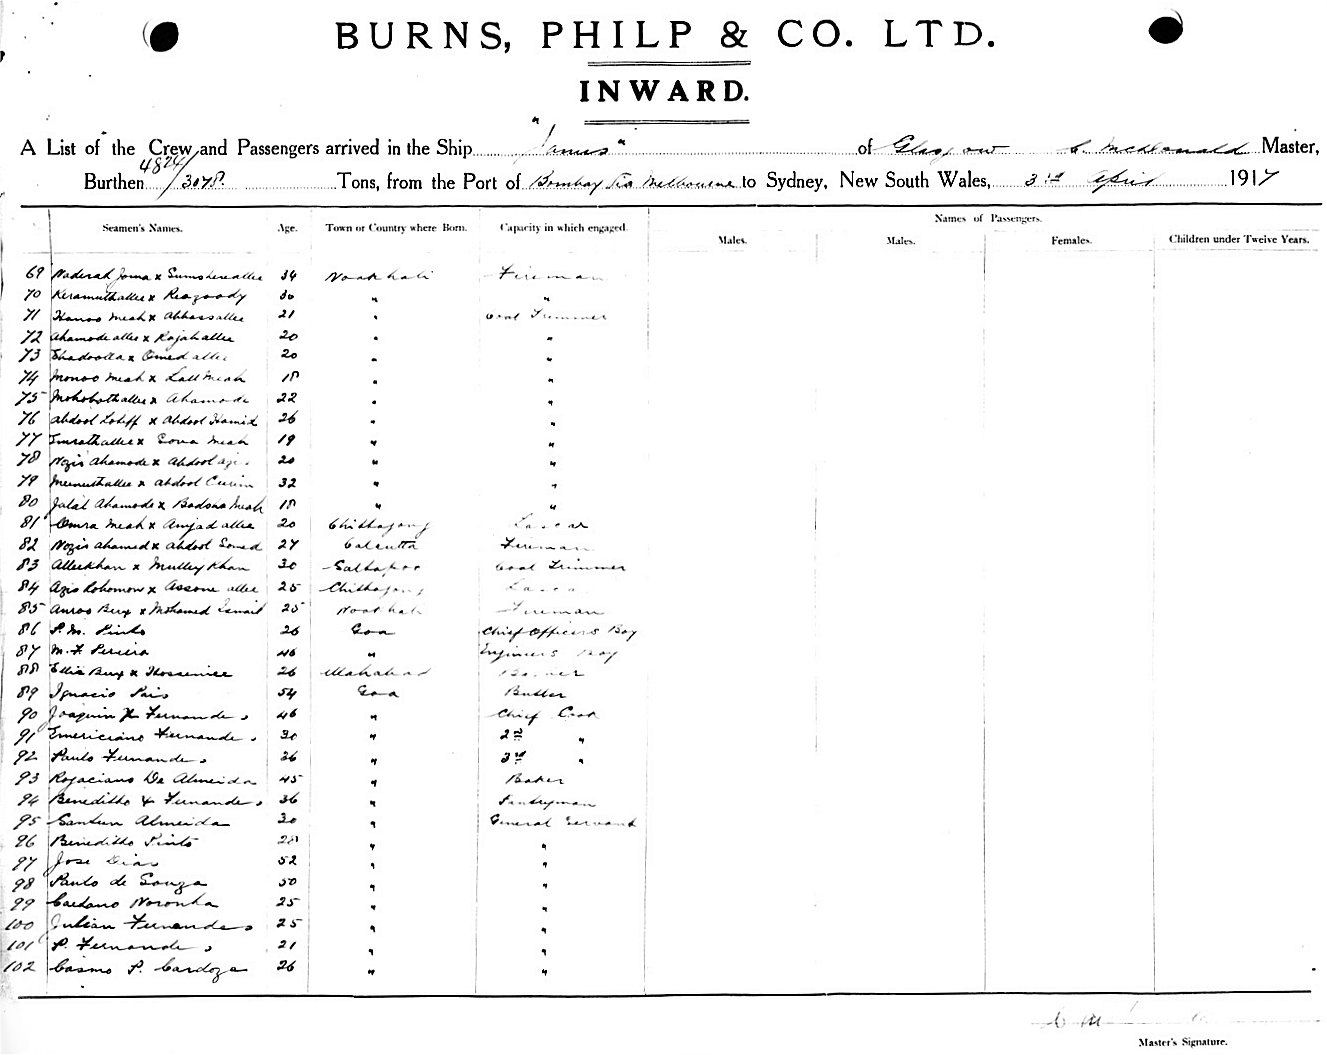 BURNS, PHILP & CO. LTD.
INWARD.
A List of the Crew and Passengers arrived in the Ship "Janus" of Glasgow C. McDonald Master,
Burthen 4824/3078. Tons, from the Port of Bombay via Melbourne to Sydney, New South Wales, 3rd April 1917
Names of Passengers.
Seamen's Names. Age. Town or Country where Born. Capacity in which engaged. Males. Males. Females. Children under Twelve Years.
69 Joma x Sumshereallee 34 Noakhali Fireman
70 Keramuthallee x Reazoody 30 " "
71 Meah x Abbassallee 21 " Coal Trimmer
72 Ahamodeallee x Rojaballee 20 " "
73 x Omedallee 20 " "
74 Monoo Meah x Lall Meah 18 " "
75 Mohobothallee x Ahamode 22 " "
76 Abdool Lotiff x Abdool Hamid 26 " "
77 x Sona Meah 19 " "
78 Nozir Ahamode x Abdool 20 " "
79 x Abdool 32 " "
80 Jalal Ahamode x Badsha Meah 18 " "
81 Omra Meah x Amjadallee 20 Chittagong Lascar
82 Nozir Ahamed x Abdool 27 Calcutta Fireman
83 Alleekhan x Khan 30 Coal Trimmer
84 Azis Rohomon x allee 25 Chittagong Lascar
85 Bux x Mohamed Ismail 25 Noakhali Fireman
86 P. M. Pinto 26 Goa Chief Officers Boy
87 M. F. Pereira 46 " Engineers Boy
88 Bux x 26
89 Ignacio Pais 54 Goa Butler
90 Joaquim X Fernandes 46 " Chief Cook
91 Emericiano Fernandes 30 " 2nd "
92 Paulo Fernandes 36 " 3rd "
93 Rogaciano De Almeida 45 " Baker
94 Beneditto X Fernandes 36 " Pantryman
95 Santan Almeida 30 " General Servant
96 Beneditto Pinto 28 " "
97 Jose Dias 52 " "
98 Paulo de Souza 50 " "
99 Caetano Noronha 25 " "
100 Julian Fernandes 25 " "
101 P. Fernandes 21 " "
102 Cosmo P. Cardoza 26 " "
Master's Signature.